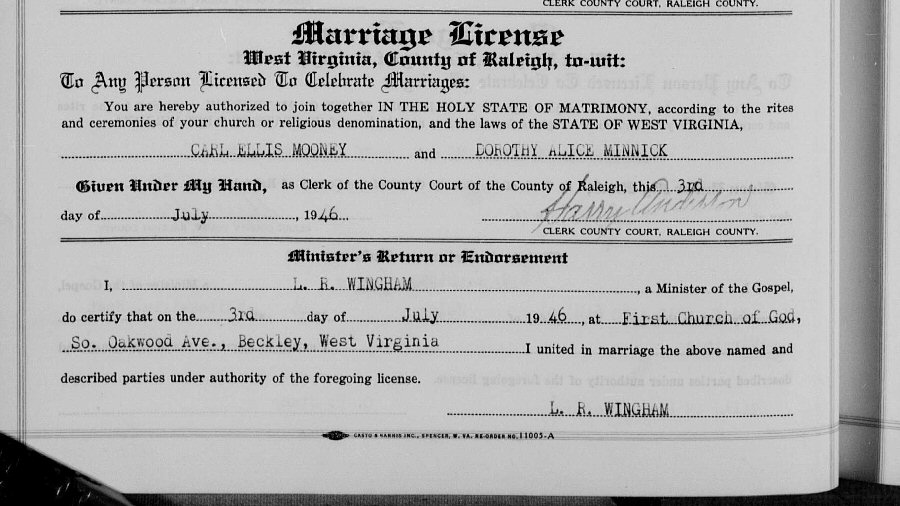 CLERK COUNTY COURT, RALEIGH COUNTY.
Marriage License
West Virginia, County of Raleigh, to-wit:
To Any Person Licensed To Celebrate Marriages:
You are hereby authorized to join together IN THE HOLY STATE OF MATRIMONY, according to the rites
and ceremonies of your church or religious denomination, and the laws of the STATE OF WEST VIRGINIA,
CARL ELLIS MOONEY and DOROTHY ALICE MINNICK
Given Under My Hand, as Clerk of the County Court of the County of Raleigh, this 3rd
day of July, 1946 Harry Anderson
CLERK COUNTY COURT, RALEIGH COUNTY.
Minister's Return or Endorsement
I, L. R. WINGHAM, a Minister of the Gospel,
do certify that on the 3rd day of July 1946, at First Church of God,
So. Oakwood Ave., Beckley, West Virginia I united in marriage the above named and
described parties under authority of the foregoing license.
L. R. WINGHAM
CASTO & HARRIS INC., SPENCER, W. VA. RE-ORDER NO. 11005-A